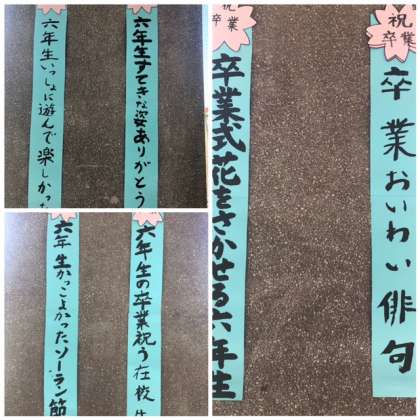 六年生いっしょに遊んで楽しかった
六年生すてきな姿ありがとう
六年生かっこよかったソーラン節
六年生の卒業祝う在校生
祝
卒業
卒業おいわい俳句
祝
卒業
卒業式花をさかせる六年生